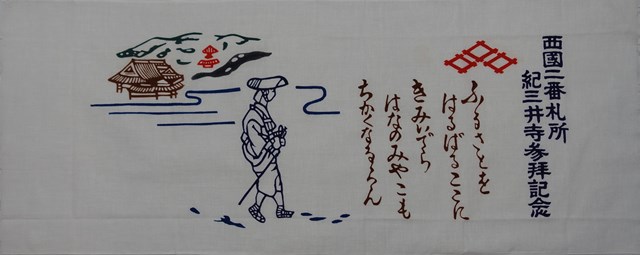 西國二番札所
紀三井寺参拝記念
ふるさとを
はるばるここに
きみいでら
はなのみやこも
ちかくなるらん